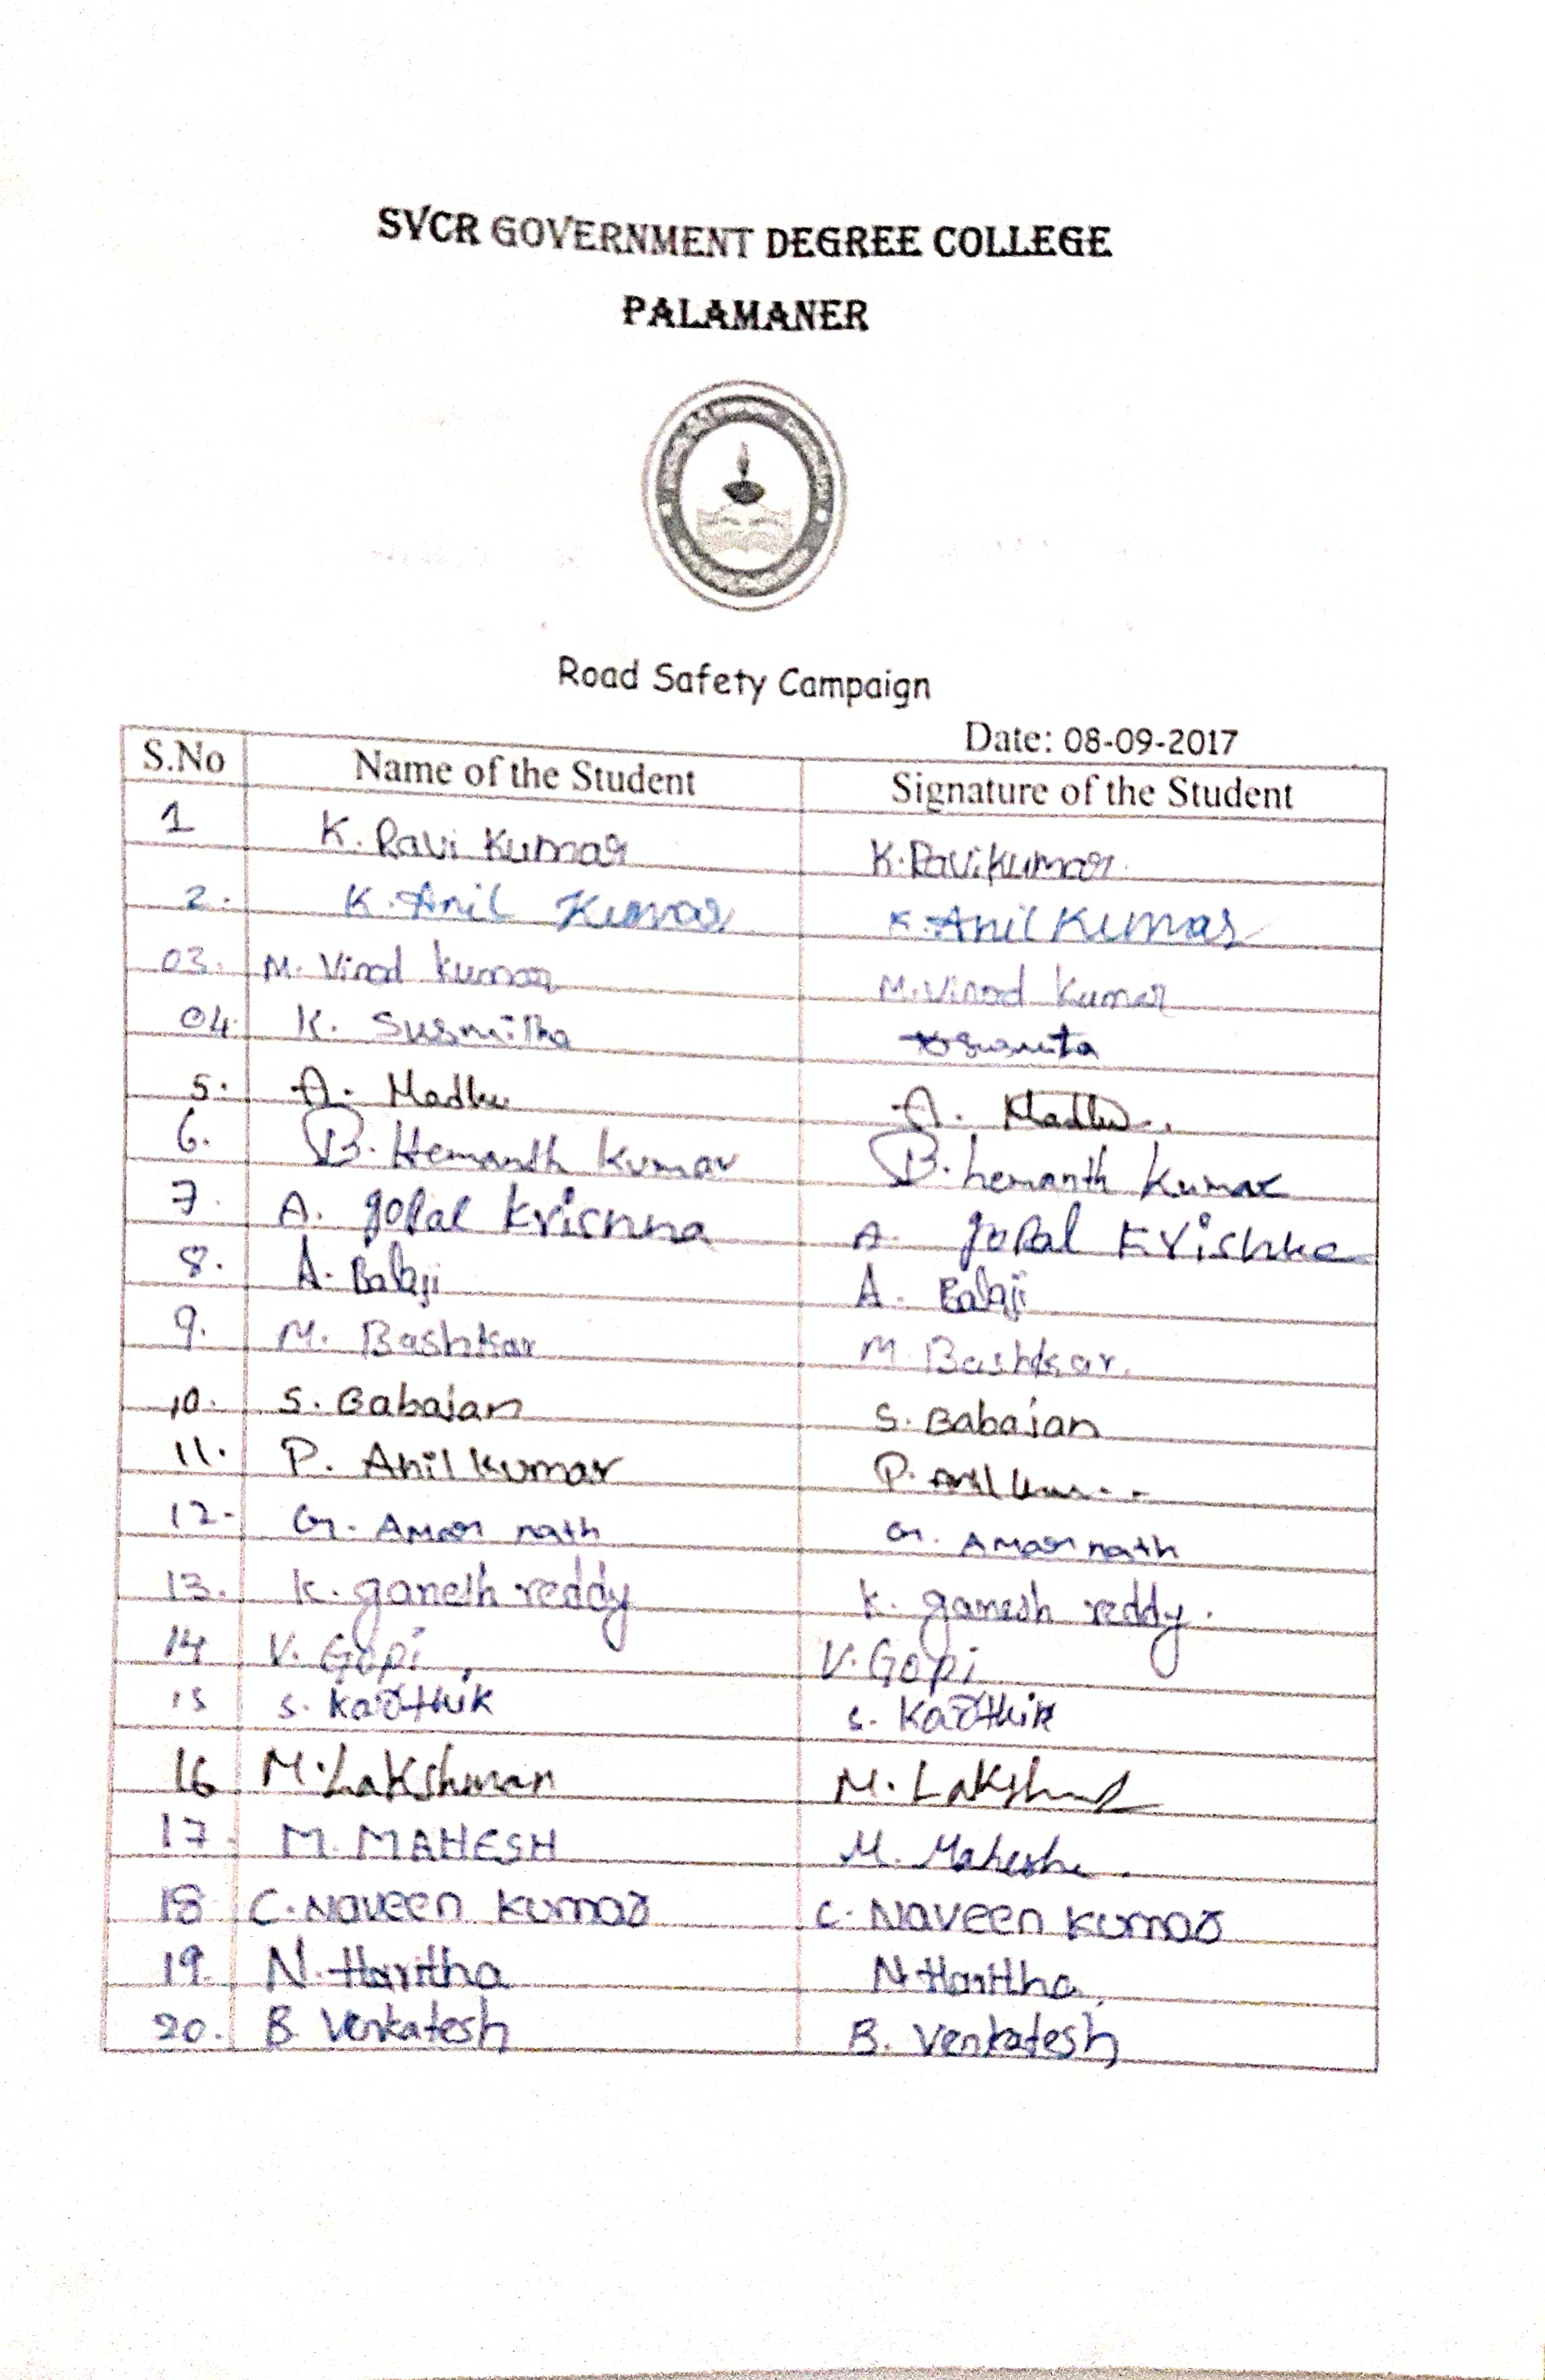 SVCR GOVERNMENT DEGREE COLLEGE
PALAMANER
Road Safety Campaign
Date: 08-09-2017
S.No Name of the Student Signature of the Student
1 K. Ravi Kumar K. Ravi Kumar
2. K. Anil Kumar K. Anil Kumar
03. M. Vinod kumar M. Vinod kumar
04. K. Susmitha Susmita
5. A. Madhu A. Madhu
6. B. Hemanth kumar B. hemanth kumar
7. A. gopal krishna A. gopal krishna
8. A. Balaji A. Balaji
9. M. Bashkar M. Bashkar.
10. S. Babajan S. Babajan
11. P. Anil kumar P. Anil
12. G. Amar nath G. Amar nath
13. K. ganesh reddy K. ganesh reddy.
14 V. Gopi V. Gopi
15 S. Karthik S. Karthik
16 M. Lakshman M. Laksh
17. M. MAHESH M. Mahesh
18 C. Naveen kumar C. Naveen kumar
19. N. Haritha N Haritha
20. B. Venkatesh B. Venkatesh